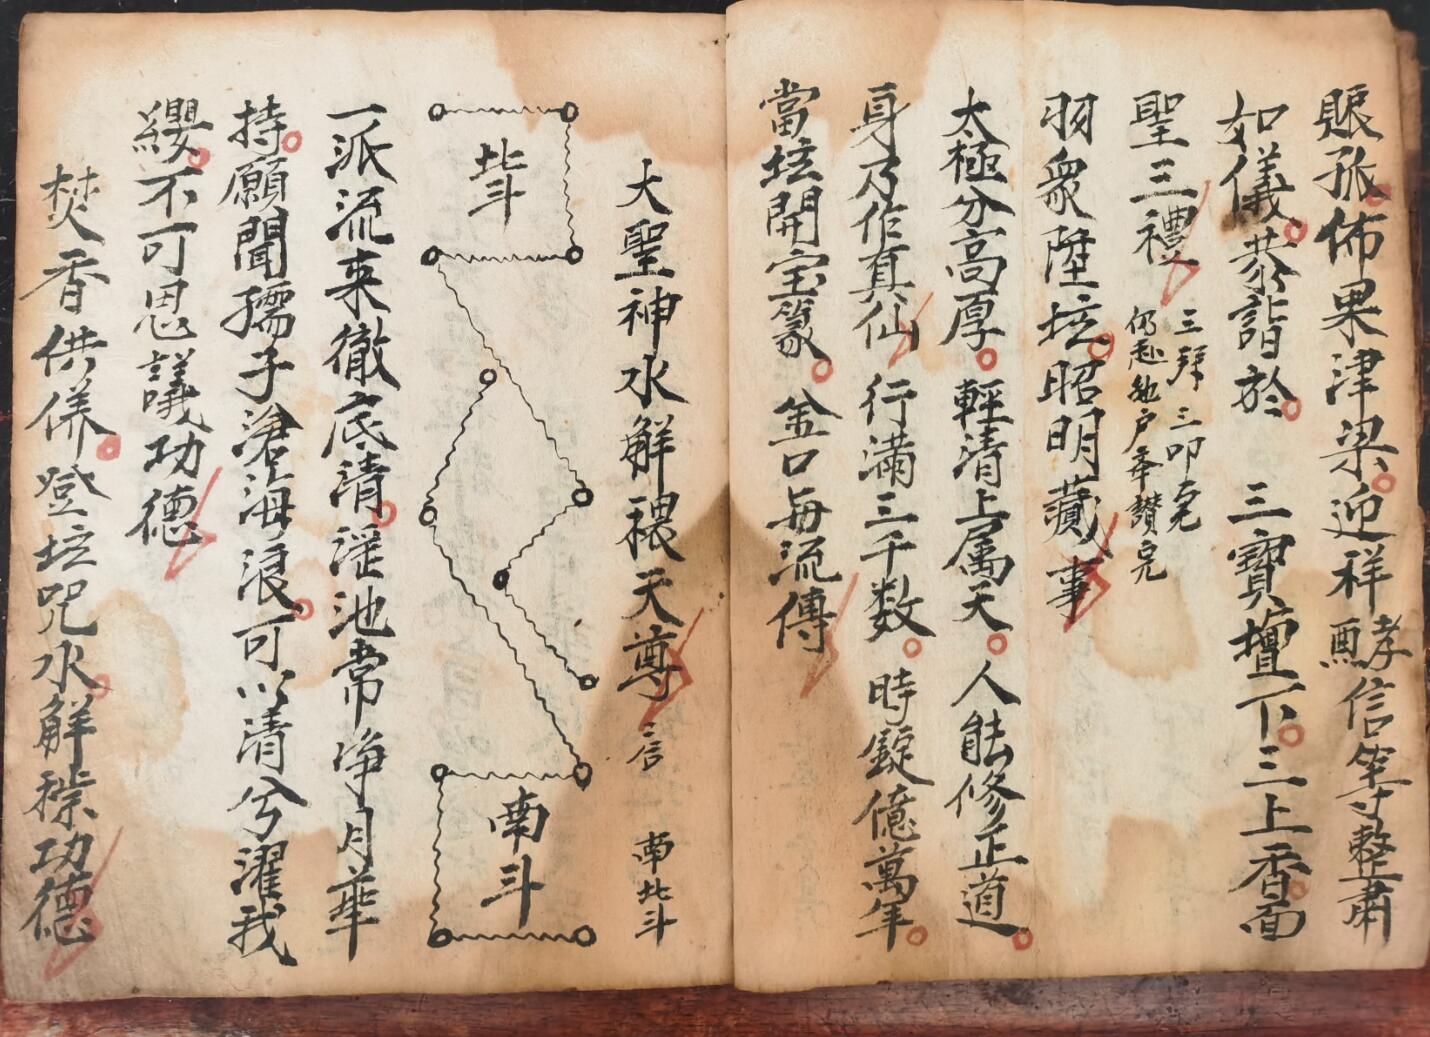 賑孤佈果津梁迎祥醮孝信等整肅
如儀恭詣於三寶壇下三上香面
聖三禮
三拜三叩完
仍赴 户 讚完
羽衆陞坛昭明蕆事
太極分高厚輕清上属天人能修正道
身乃作真仙行满三千数時 億萬年
當坛開宝篆金口每流傳
大聖神水解穢天尊 南北斗
北斗
南斗
一派流来徹底清瑶池常净月華
持願聞孺子滄海浪可以清兮濯我
纓不可思議功德
焚香供养登坛咒水解穢功德